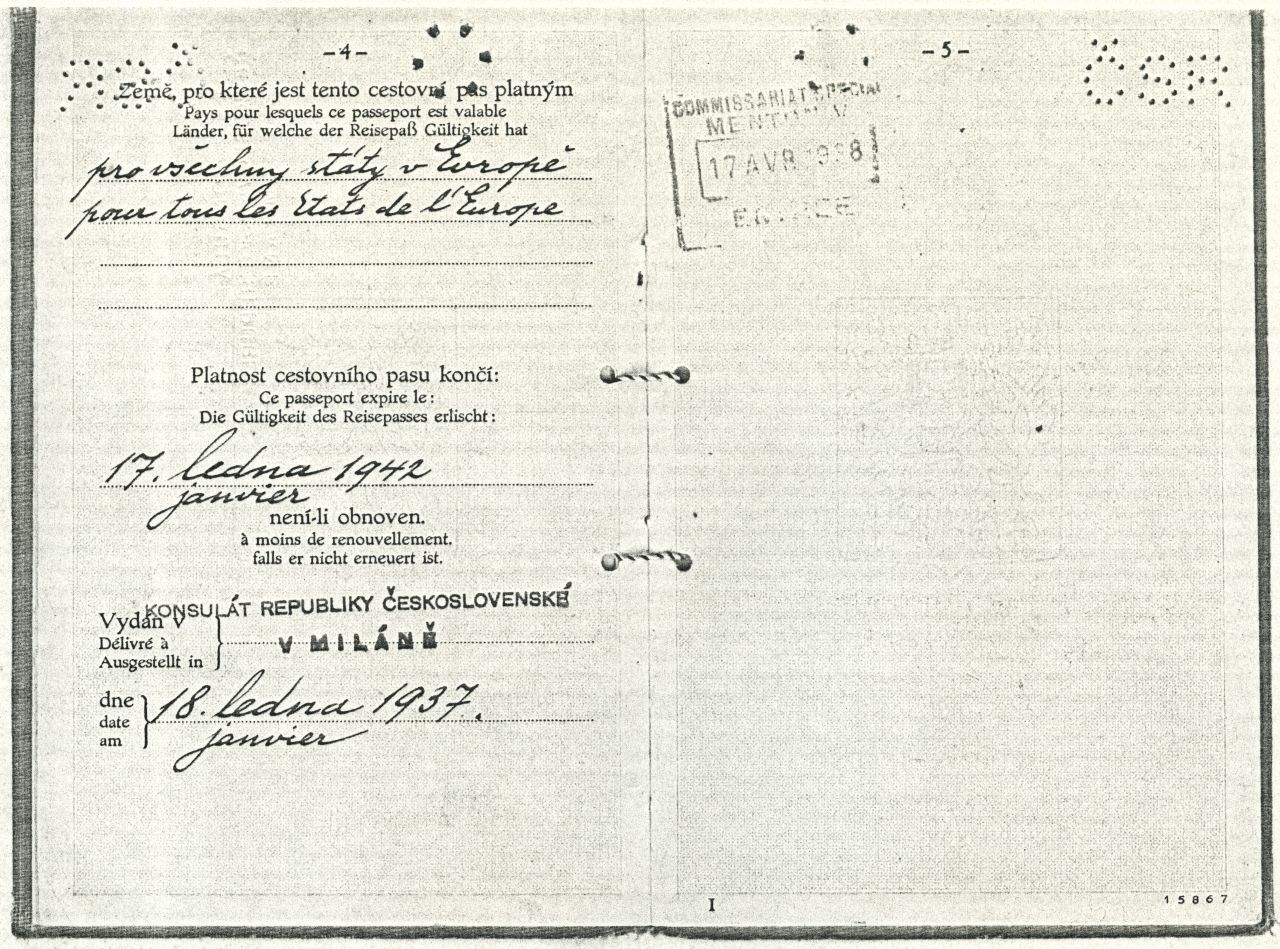 -4-
Země, pro které jest tento cestovní pas platným
Pays pour lesquels ce passeport est valable
Länder, für welche der Reisepaß Gültigkeit hat
pro všechny státy v Evropě
pour tous les Etats de l'Europe
Platnost cestovního pasu končí:
Ce passeport expire le:
Die Gültigkeit des Reisepasses erlischt:
17. ledna 1942
janvier
není-li obnoven.
à moins de renouvellement.
falls er nicht erneuert ist.
KONSULÁT REPUBLIKY ČESKOSLOVENSKÉ
Vydán v
Délivré à
V MILÁNĚ
Ausgestellt in
dne
18. ledna 1937.
date
am
janvier
-5-
ČSR
COMMISSARIAT SPECIAL
17 AVR 1938
I
15867